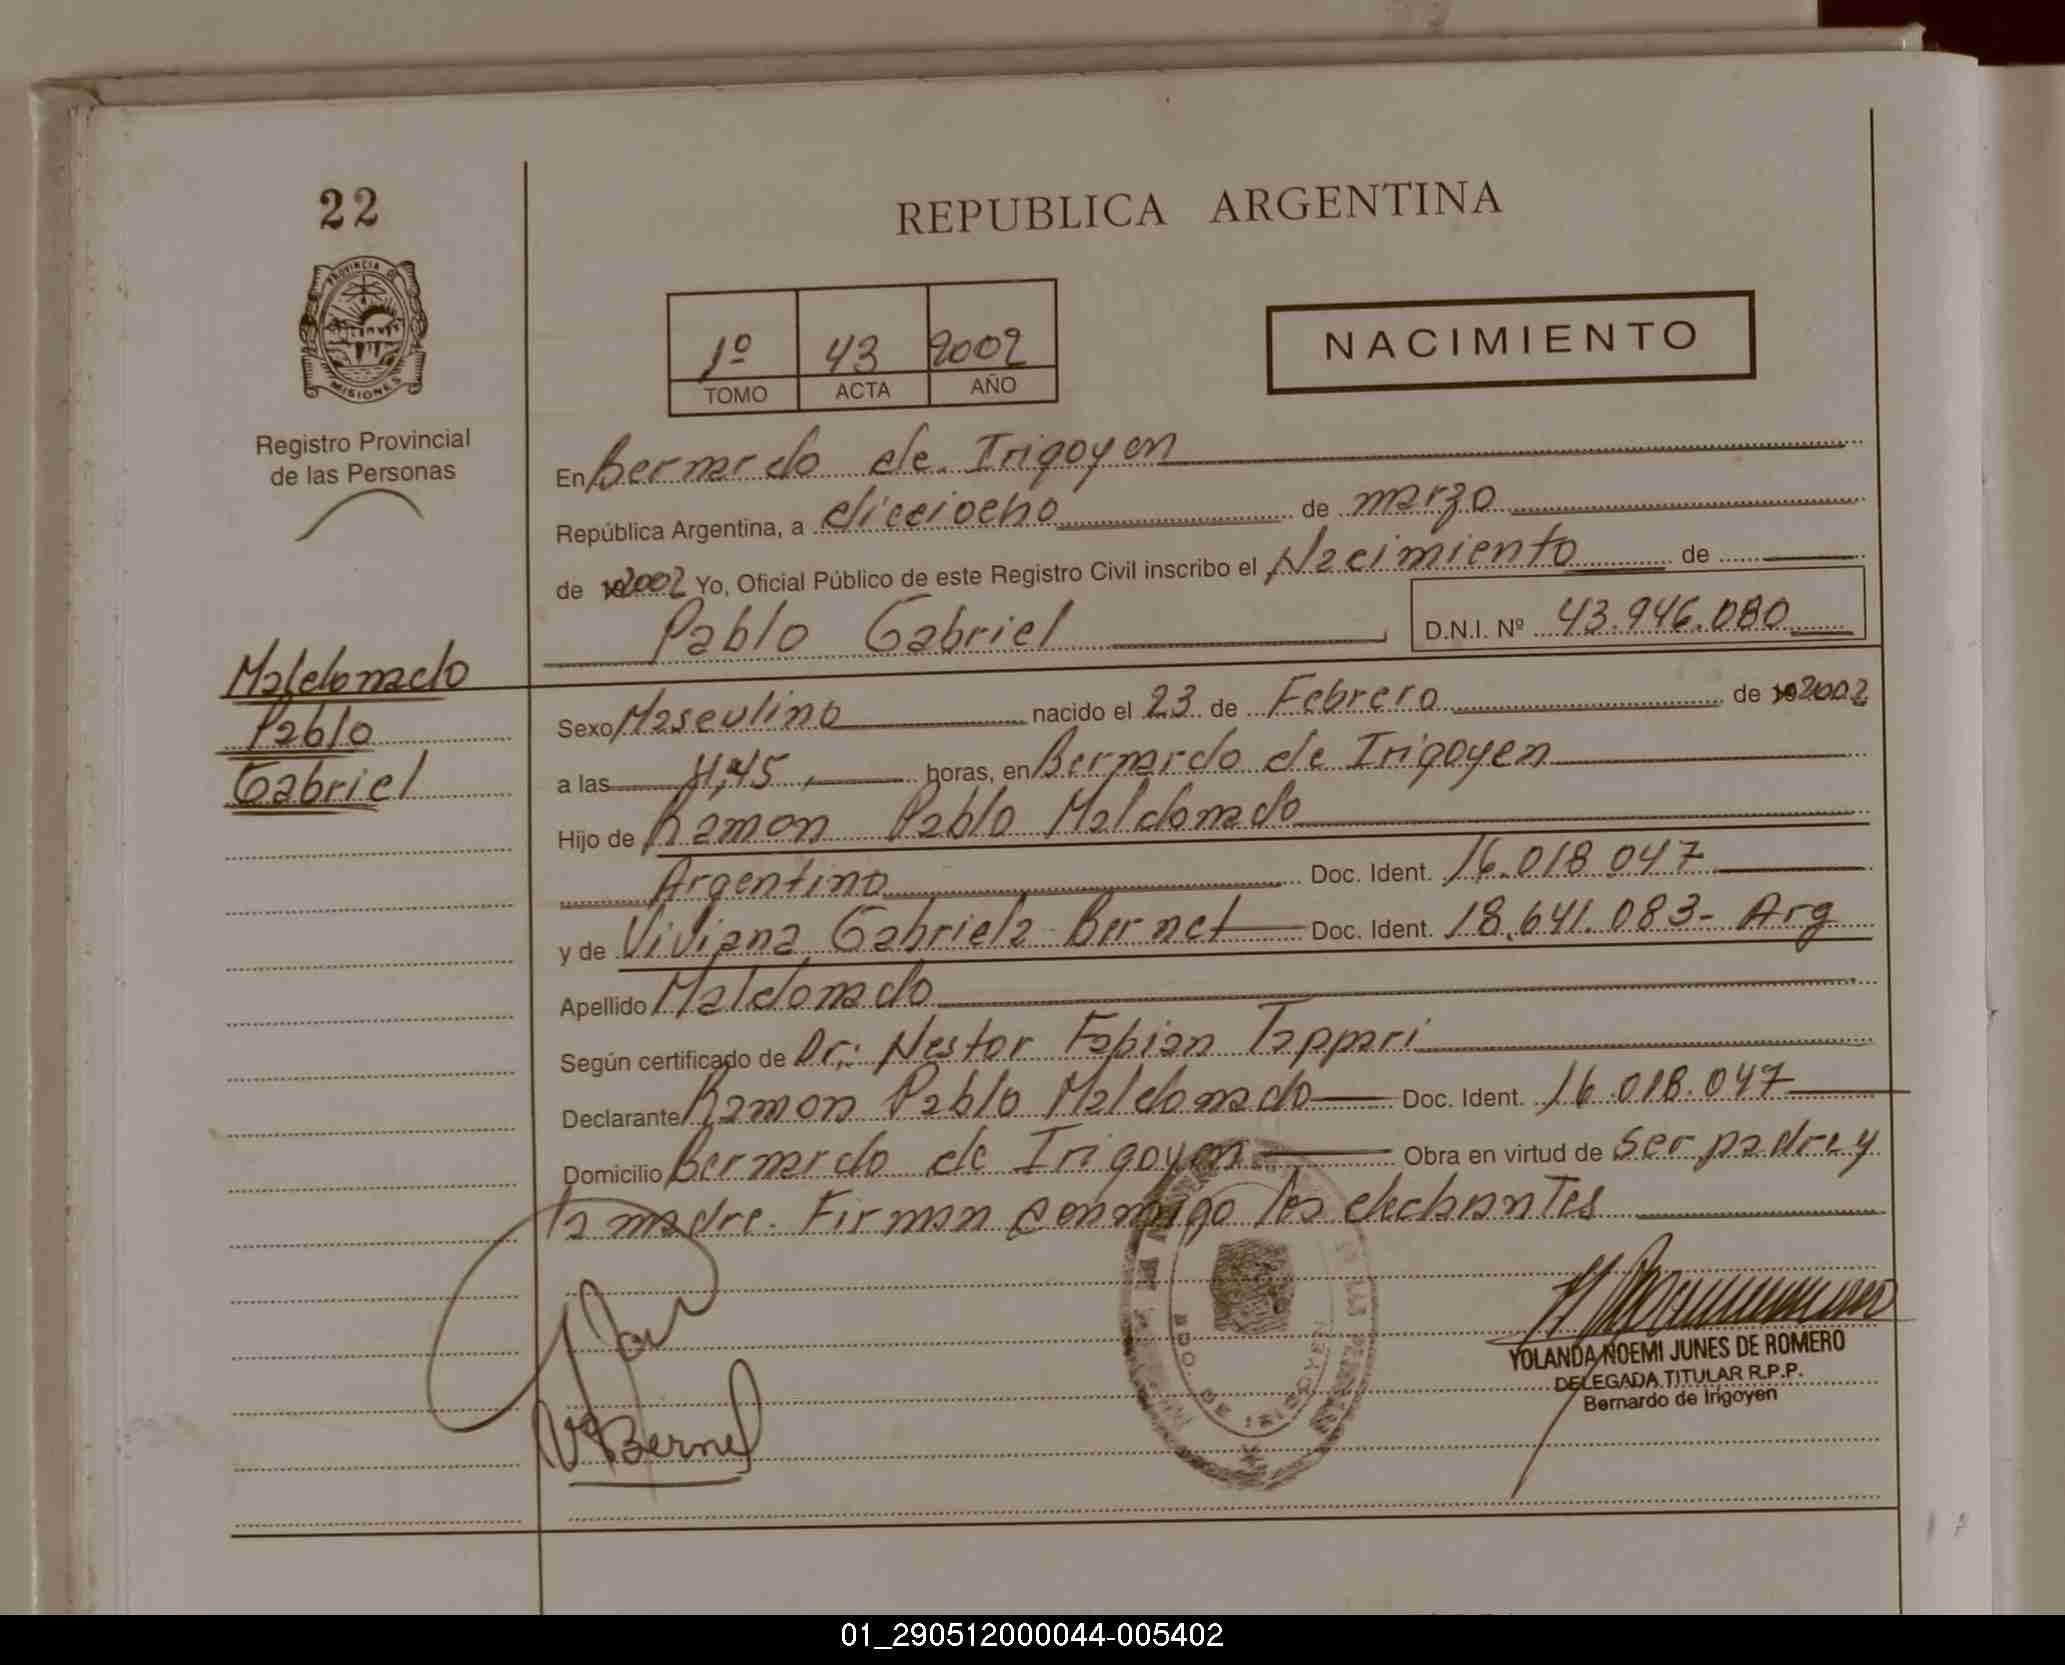 22
REPUBLICA ARGENTINA
PROVINCIA DE
MISIONES
Registro Provincial
de las Personas
1º 43 2002
TOMO ACTA AÑO
NACIMIENTO
En Bernardo de Irigoyen
República Argentina, a dieciocho de marzo
de 2002 Yo, Oficial Público de este Registro Civil inscribo el Nacimiento de
Pablo Gabriel D.N.I. Nº 43.946.080
Maldonado
Pablo
Gabriel
Sexo Masculino nacido el 23 de Febrero de 2002
a las 11,45 horas, en Bernardo de Irigoyen
Hijo de Ramon Pablo Maldonado
Argentino Doc. Ident. 16.018.047
y de Viviana Gabriela Bernet Doc. Ident. 18.641.083- Arg
Apellido Maldonado
Según certificado de Dr: Nestor Fabian Tappari
Declarante Ramon Pablo Maldonado Doc. Ident. 16.018.047
Domicilio Bernardo de Irigoyen Obra en virtud de ser padre y
la madre. Firman conmigo los declarantes
BDO. DE IRIGOYEN
V Bernet
YOLANDA NOEMI JUNES DE ROMERO
DELEGADA TITULAR R.P.P.
Bernardo de Irigoyen
01_290512000044-005402